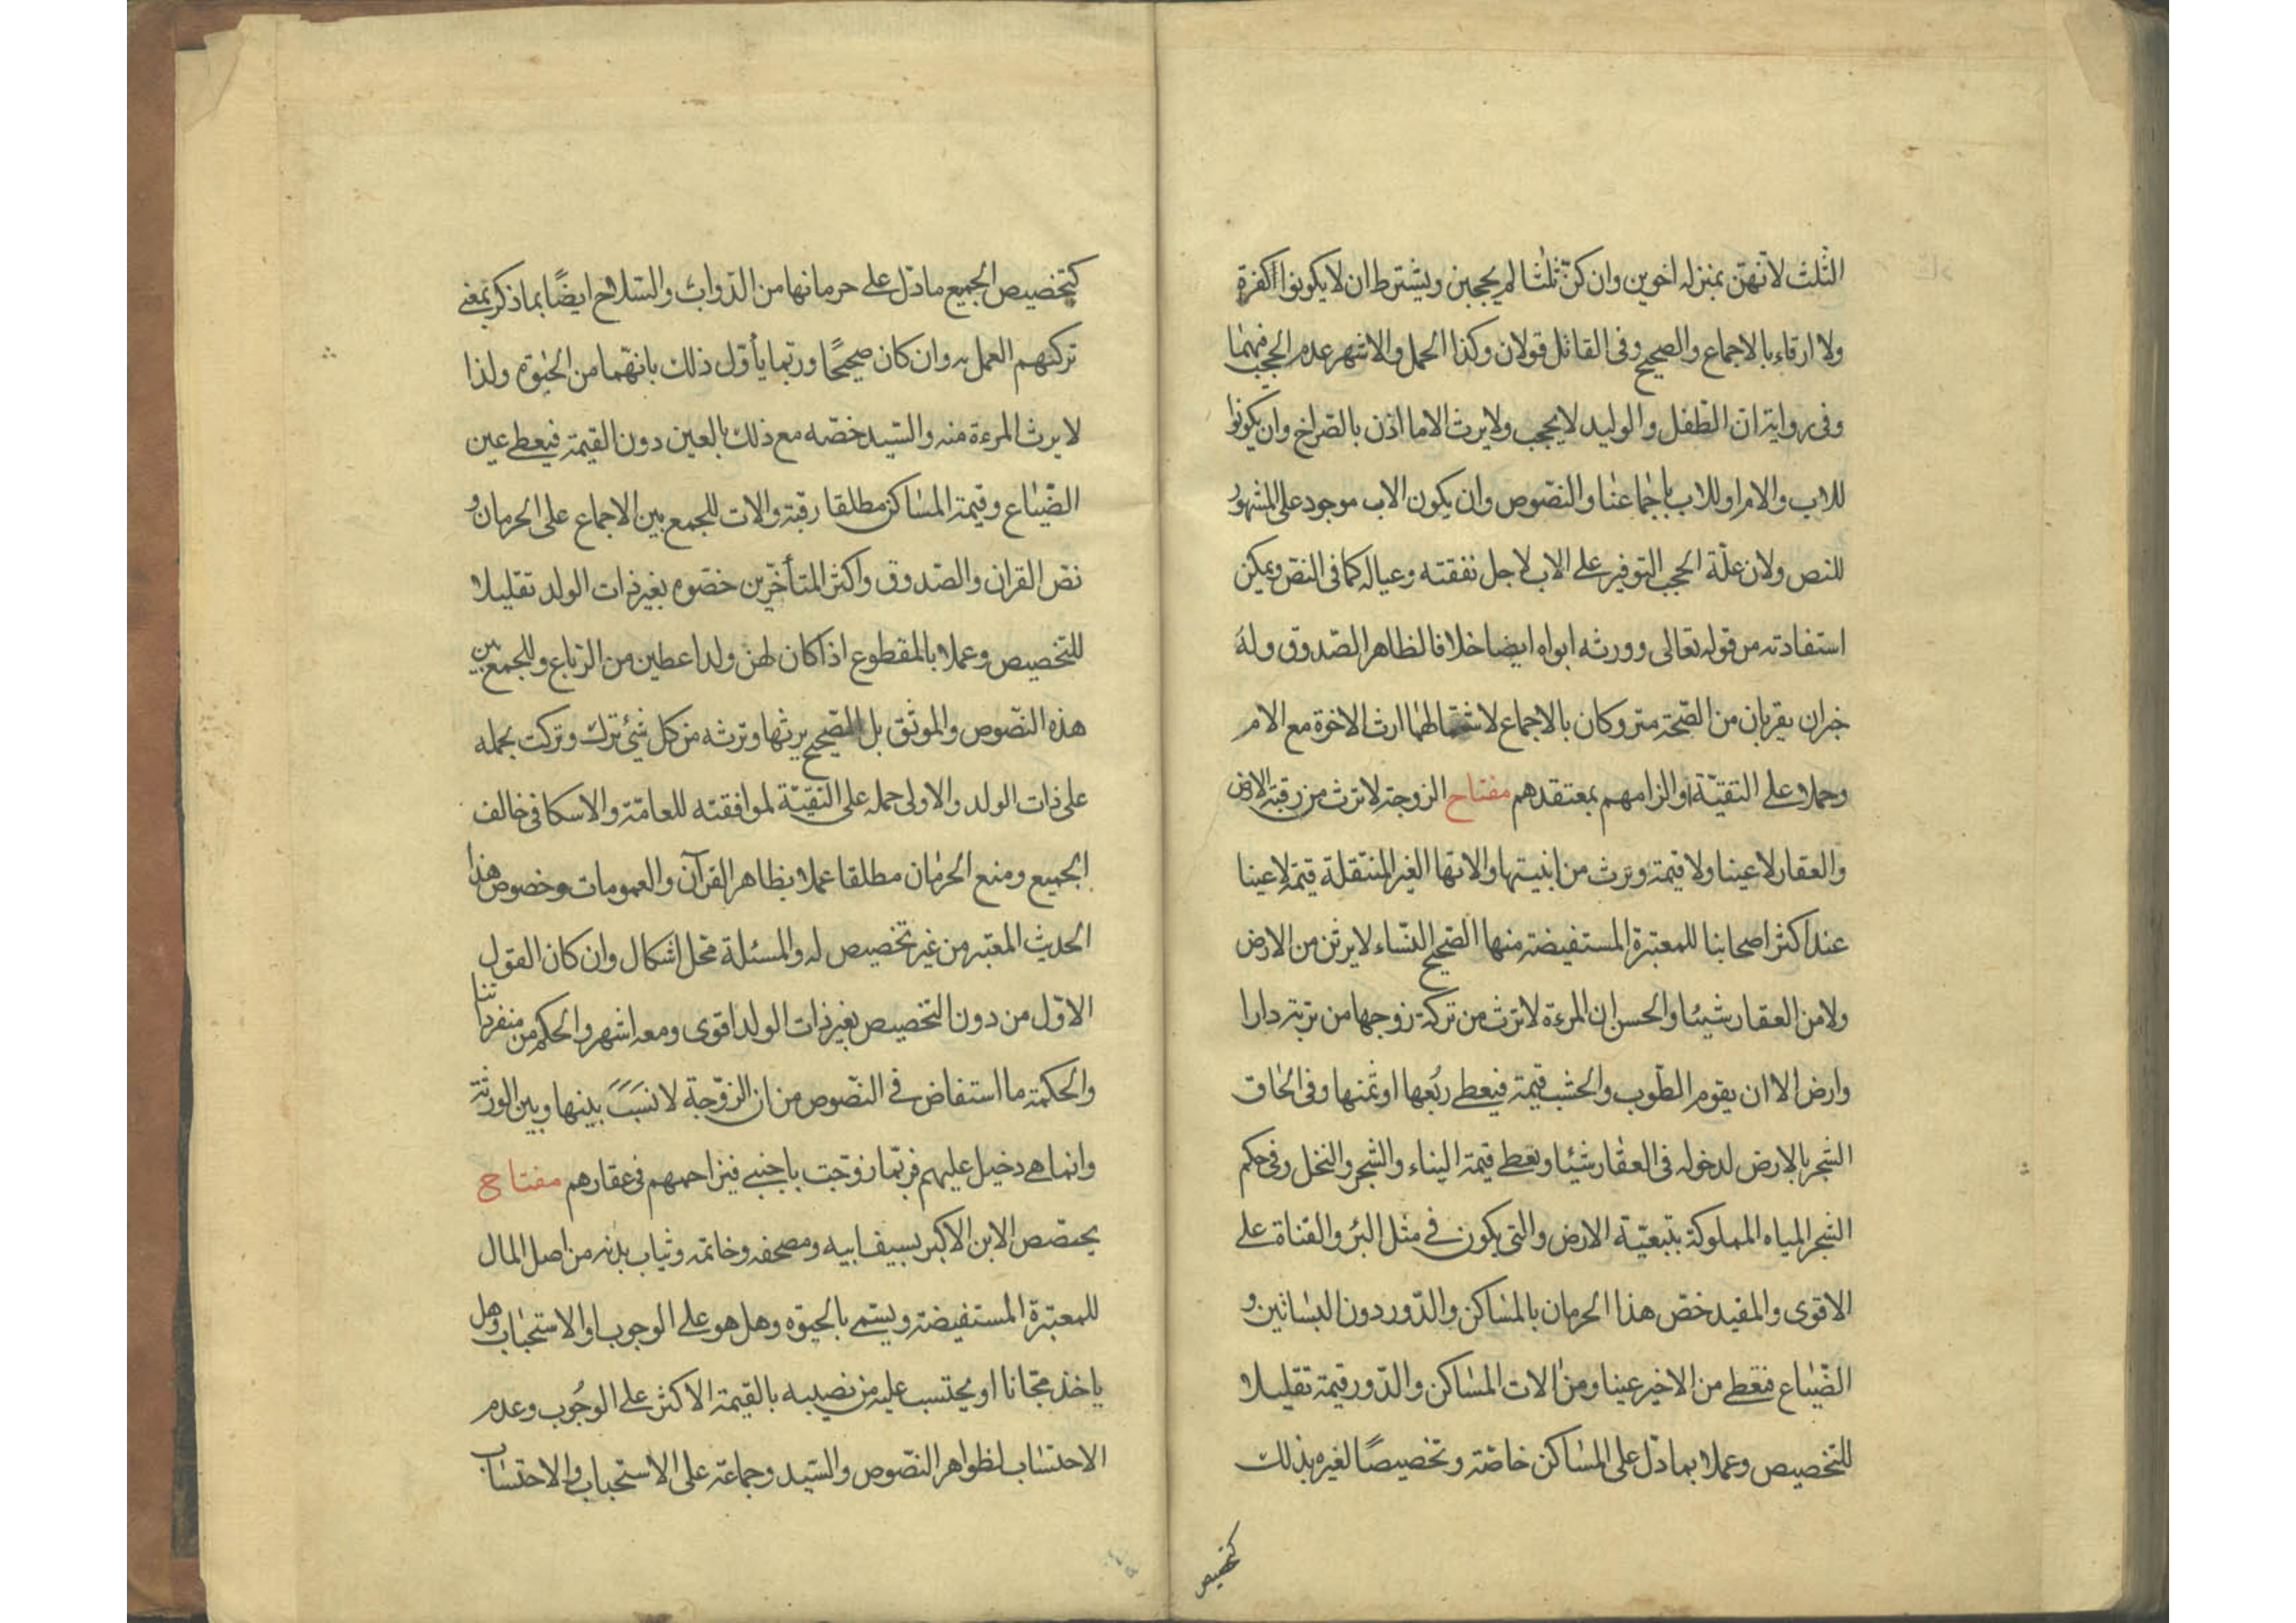 الثلث لانّهنّ بمنزلة اخوين وان كنّ ثلثا لم يحجبن ويشترط ان لا يكونوا كفرة
ولا ارقاء بالاجماع والصحيح وفى القاتل قولان وكذا الحمل والاشهر عدم الحجب فيهما
وفى رواية ان الطّفل والوليد لا يحجب ولا يرث الا ما اذن بالصراخ وان يكونوا
للاب والام او للاب باجماعنا والنصّوص وان يكون الاب موجود على المشهور
للنص ولان علّة الحجب التوفير على الاب لاجل نفقته وعياله كما فى النصّ ويمكن
استفادته من قوله تعالى وورثه ابواه ايضا خلافا لظاهر الصّدوق وله
خبران يقربان من الصّحة متروكان بالاجماع لاشتمالهما ارث الاخوة مع الام
وحملا على التقيّة او الزامهم بمعتقدهم مفتاح الزوجة لا ترث من رقبة الارض
والعقار لا عينا ولا قيمة وترث من ابنيتها والاتها الغير المنتقلة قيمة لا عينا
عند اكثر اصحابنا للمعتبرة المستفيضة منها الصّحيح النّساء لا يرثن من الارض
ولا من العقار شيئا والحسن ان المرءة لا ترث من تركة زوجها من تربة دار ا
وارض الا ان يقوم الطّوب والخشب قيمة فيعطى ربُعها او ثمنها وفى الحاق
الشجر بالارض لدخوله فى العقار شيئا وتعطى قيمة البناء والشجر والنخل وفى حكم
الشجر المياه المملوكة بتبعيّة الارض والتى يكون فى مثل البئر والقناة على
الاقوى والمفيد خصّ هذا الحرمان بالمساكن والدّور دون البساتين و
الضّياع فتعطى من الاخير عينا ومن الات المساكن والدّور قيمة تقليلا
للتخصيص وعملا بما دلّ على المساكن خاصّة وتخصيصًا لغيره بذلك
كتخصيص
كتخصيص الجميع ما دلّ على حرمانها من الدّواب والسّلاح ايضًا بما ذكر بمعنى
تركهم العمل به وان كان صحيحًا وربّما يأوّل ذلك بانّهما من الحبوة ولذا
لا يرث المرءة منه والسّيد خصّه مع ذلك بالعين دون القيمة فيعطى عين
الضّياع وقيمة المساكن مطلقا رقبة والات للجمع بين الاجماع على الحرمان و
نصّ القران والصّدوق واكثر المتأخّرين خصّوه بغير ذات الولد تقليلا
للتخصيص وعملا بالمقطوع اذا كان لهن ولد اعطين من الرّباع وللجمع بين
هذه النصّوص والموثق بل الصّحيح يرثها وترثه من كل شئ ترك وتركت بحمله
على ذات الولد والاولى حمله على التقيّة لموافقته للعامّة والاسكافى خالف
الجميع ومنع الحرمان مطلقا عملا بظاهر القرآن والعمومات وخصوص هذا
الحديث المعتبر من غير تخصيص له والمسئلة محل اشكال وان كان القول
الاوّل من دون التخصيص بغير ذات الولد اقوى ومعه اشهر والحكم من منفرداتنا
والحكمة ما استفاض فى النصّوص من ان الزوّجة لا نسَبَ بينها وبين الورثة
وانما هى دخيل عليهم فربّما زوّجت باجنبى فيزاحمهم فى عقارهم مفتاح
يختصّ الابن الاكبر بسيف ابيه ومصحفه وخاتمه وثياب بدنه من اصل المال
للمعتبرة المستفيضة ويسّمى بالحبوه وهل هو على الوجوب او الاستحباب وهل
ياخذ مجّانا او يحتسب عليه من نصيبه بالقيمة الاكثر على الوجُوب وعدم
الاحتساب لظواهر النصّوص والسّيد وجماعة على الاستحباب والاحتساب